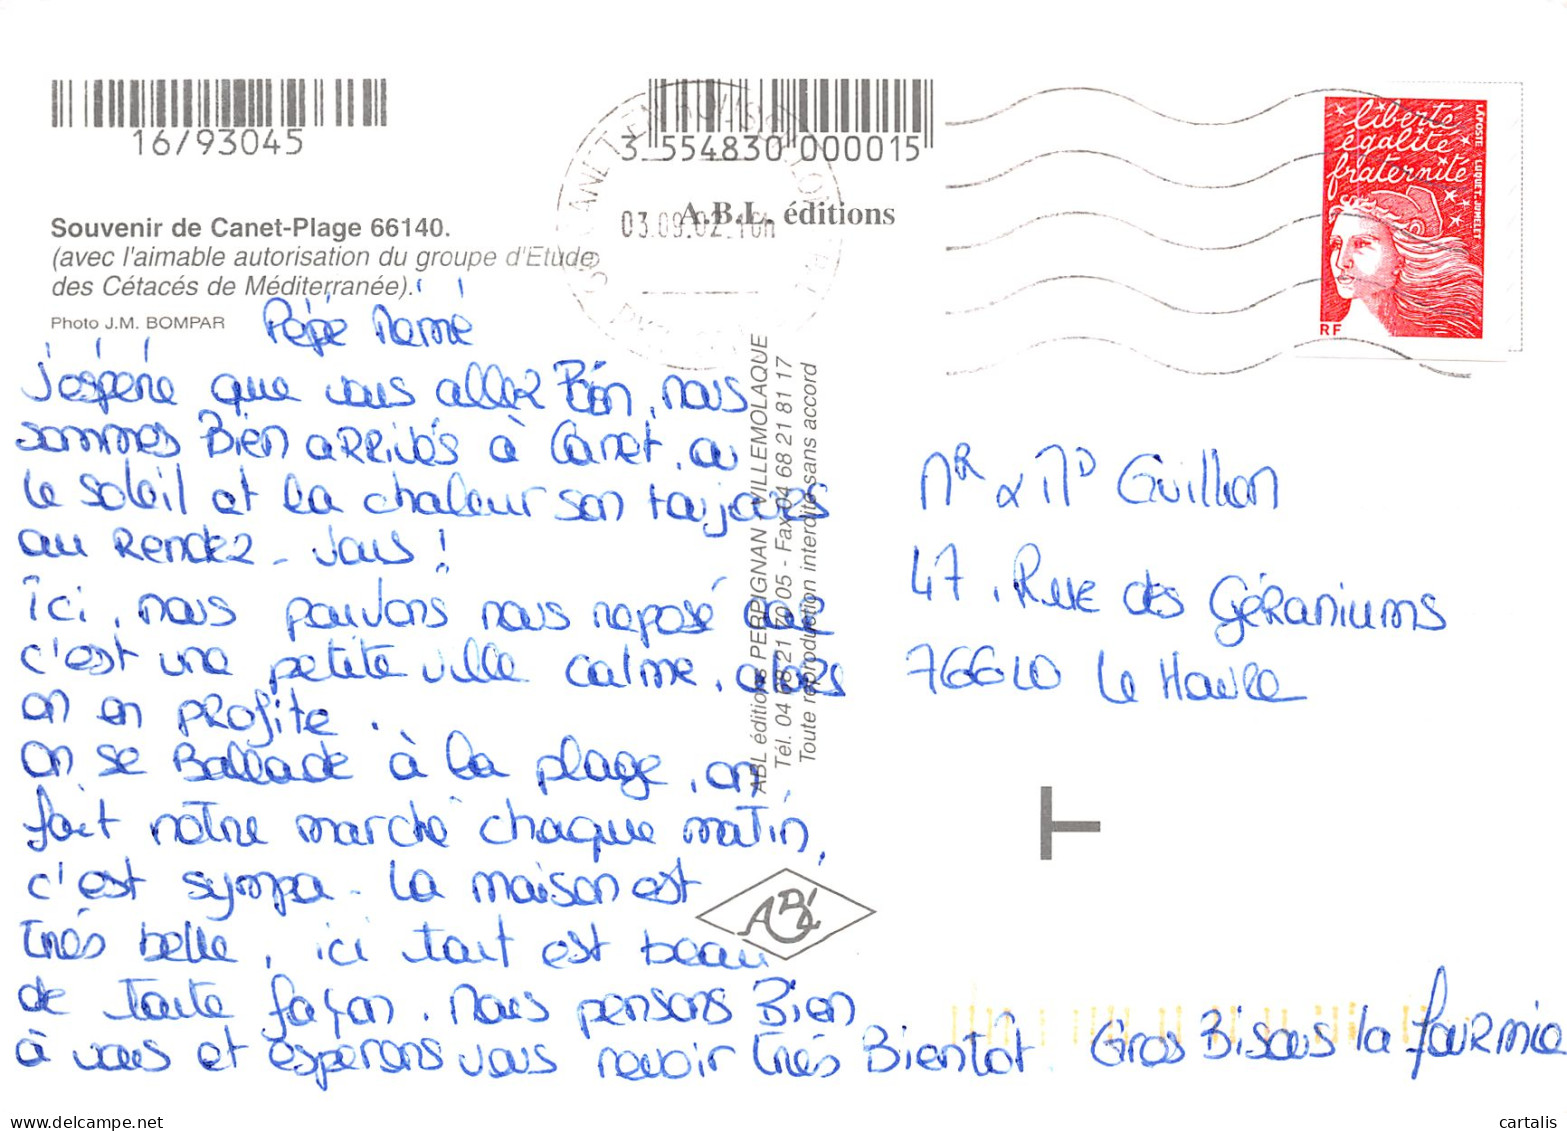 16/93045
3 554830 000015
A.B.L. éditions
Souvenir de Canet-Plage 66140.
(avec l'aimable autorisation du groupe d'Etude
des Cétacés de Méditerranée).
Photo J.M. BOMPAR
03.09.02
liberté
égalité
fraternité
LA POSTE LUQUET-JUMELET
RF
Pépé Mamé
j'espère que vous allez Bién, nous
sommes Bien arrivés à Canet, ou
le soleil et la chaleur son toujours
au Rendez-vous !
ici, nous pouvons nous reposé car
c'est une petite ville calme, alors
on en profite.
On se Ballade à la plage, on
fait notre marché chaque matin,
c'est sympa. La maison est
très belle, ici tout est beau
de toute façon. Nous pensons Bien
à vous et esperons vous revoir très Bientôt. Gros Bisous la fourmie
ABL éditions PERPIGNAN VILLEMOLAQUE
Tél. 04 68 21 70 05 - Fax 04 68 21 81 17
Toute reproduction interdite sans accord
ABL
Mr & Md Guillon
47, Rue des Géraniums
76610 Le Havre
T
www.delcampe.net
cartalis